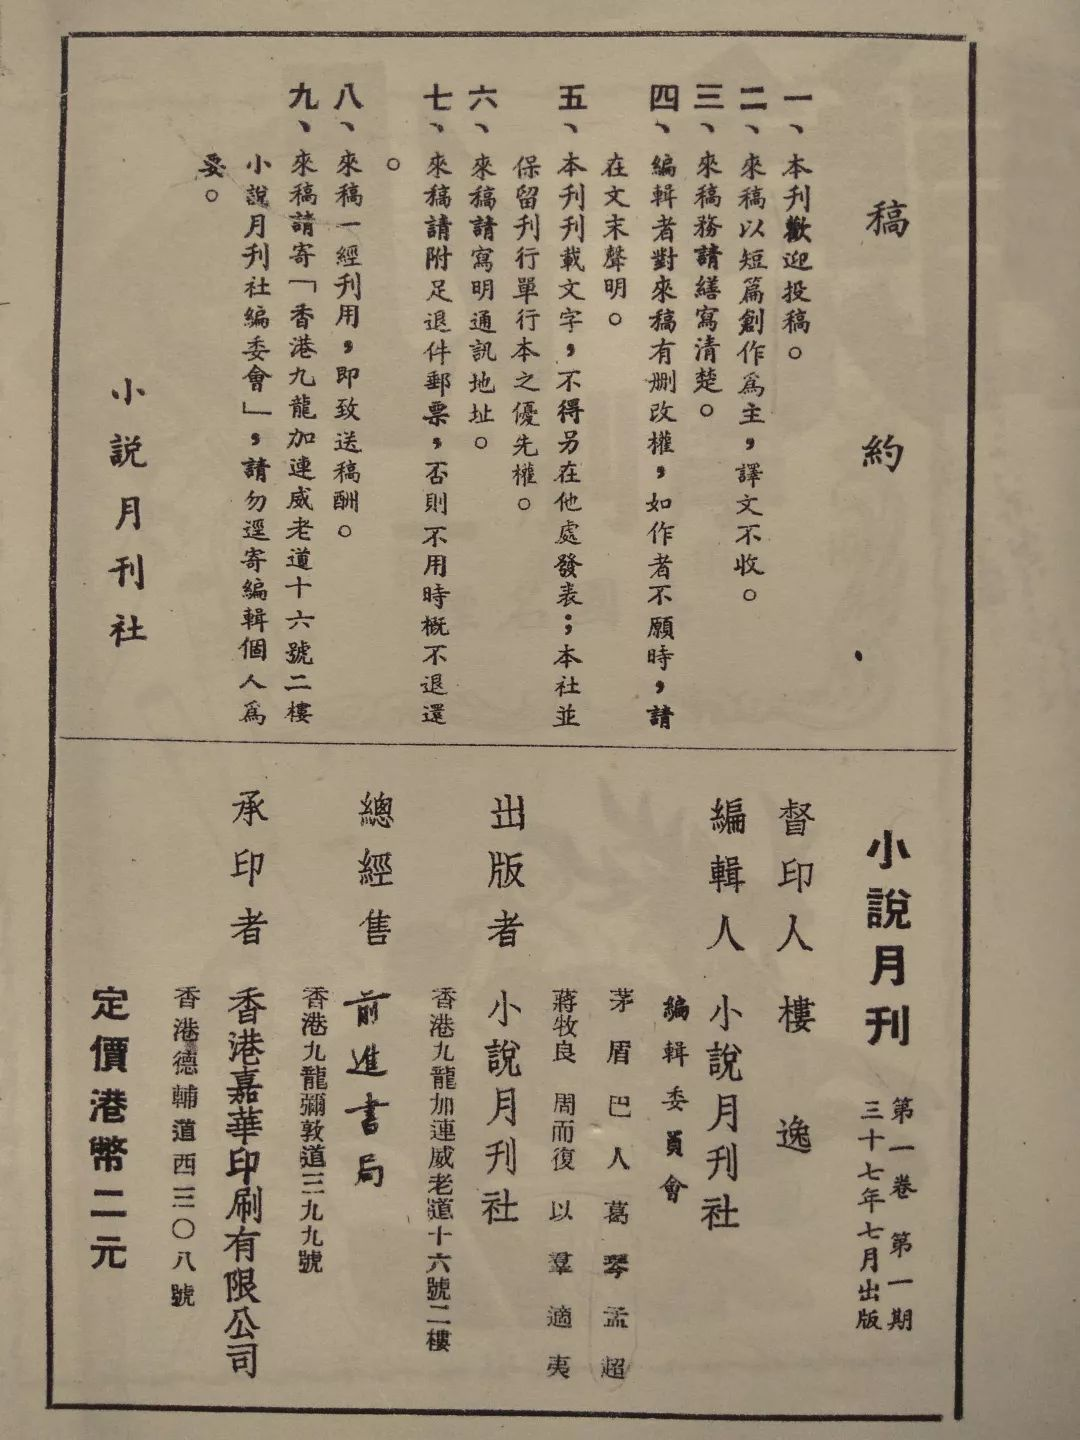 稿約
一、本刊歡迎投稿。
二、來稿以短篇創作爲主，譯文不收。
三、來稿務請繕寫清楚。
四、編輯者對來稿有删改權，如作者不願時，請
在文末聲明。
五、本刊刊載文字，不得另在他處發表；本社並
保留刊行單行本之優先權。
六、來稿請寫明通訊地址。
七、來稿請附足退件郵票，否則不用時概不退還
。
八、來稿一經刊用，即致送稿酬。
九、來稿請寄「香港九龍加連威老道十六號二樓
小說月刊社編委會」，請勿逕寄編輯個人爲
要。
小說月刊社
小說月刊 第一卷 第一期
三十七年七月出版
督印人 樓逸
編輯人 小說月刊社
編輯委員會
茅盾 巴人 葛琴 孟超
蔣牧良 周而復 以羣 適夷
出版者 小說月刊社
香港九龍加連威老道十六號二樓
總經售 前進書局
香港九龍彌敦道三九九號
承印者 香港嘉華印刷有限公司
香港德輔道西三〇八號
定價港幣二元